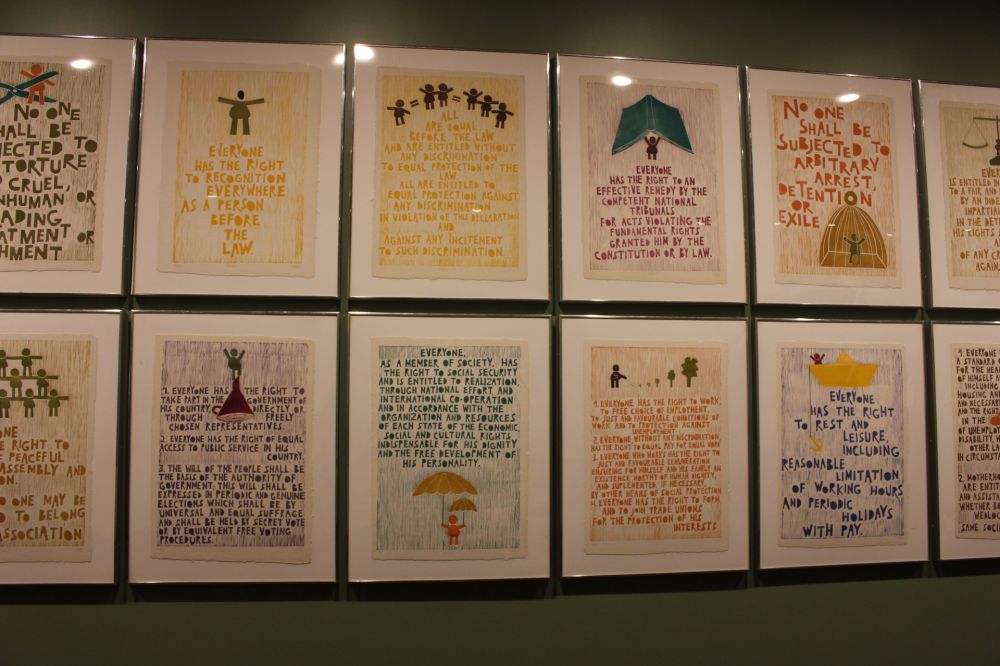 NO ONE
SHALL BE
TORTURE
CRUEL,
OR
OR
EVERYONE
HAS THE RIGHT
TO RECOGNITION
EVERYWHERE
AS A PERSON
BEFORE
THE
LAW.
ALL
ARE EQUAL
BEFORE THE LAW
AND ARE ENTITLED WITHOUT
ANY DISCRIMINATION
TO EQUAL PROTECTION OF THE
LAW.
ALL ARE ENTITLED TO
EQUAL PROTECTION AGAINST
ANY DISCRIMINATION
IN VIOLATION OF THIS DECLARATION
AND
AGAINST ANY INCITEMENT
TO SUCH DISCRIMINATION.
EVERYONE
HAS THE RIGHT TO AN
EFFECTIVE REMEDY BY THE
COMPETENT NATIONAL
TRIBUNALS
FOR ACTS VIOLATING THE
FUNDAMENTAL RIGHTS
GRANTED HIM BY THE
CONSTITUTION OR BY LAW.
NO ONE
SHALL BE
SUBJECTED TO
ARBITRARY
ARREST,
DETENTION
OR
EXILE
TO A FAIR AND
IN THE
HIS RIGHTS
OF ANY
RIGHT TO
PEACEFUL
ASSEMBLY AND
ONE MAY BE
TO BELONG
ASSOCIATION
1. EVERYONE HAS THE RIGHT TO
TAKE PART IN THE GOVERNMENT OF
HIS COUNTRY, DIRECTLY OR
THROUGH FREELY
CHOSEN REPRESENTATIVES.
2. EVERYONE HAS THE RIGHT OF EQUAL
ACCESS TO PUBLIC SERVICE IN HIS
COUNTRY.
3. THE WILL OF THE PEOPLE SHALL BE
THE BASIS OF THE AUTHORITY OF
GOVERNMENT; THIS WILL SHALL BE
EXPRESSED IN PERIODIC AND GENUINE
ELECTIONS WHICH SHALL BE BY
UNIVERSAL AND EQUAL SUFFRAGE
AND SHALL BE HELD BY SECRET VOTE
OR BY EQUIVALENT FREE VOTING
PROCEDURES.
EVERYONE,
AS A MEMBER OF SOCIETY, HAS
THE RIGHT TO SOCIAL SECURITY
AND IS ENTITLED TO REALIZATION,
THROUGH NATIONAL EFFORT AND
INTERNATIONAL CO-OPERATION
AND IN ACCORDANCE WITH THE
ORGANIZATION AND RESOURCES
OF EACH STATE, OF THE ECONOMIC,
SOCIAL AND CULTURAL RIGHTS
INDISPENSABLE FOR HIS DIGNITY
AND THE FREE DEVELOPMENT OF
HIS PERSONALITY.
1. EVERYONE HAS THE RIGHT TO WORK,
TO FREE CHOICE OF EMPLOYMENT,
TO JUST AND FAVOURABLE CONDITIONS OF
WORK AND TO PROTECTION AGAINST
UNEMPLOYMENT.
2. EVERYONE WITHOUT ANY DISCRIMINATION
HAS THE RIGHT TO EQUAL PAY FOR EQUAL WORK
3. EVERYONE WHO WORKS HAS THE RIGHT TO
JUST AND FAVOURABLE REMUNERATION
ENSURING FOR HIMSELF AND HIS FAMILY AN
EXISTENCE WORTHY OF HUMAN DIGNITY,
AND SUPLEMENTED, IF NECESSARY,
BY OTHER MEANS OF SOCIAL PROTECTION
4. EVERYONE HAS THE RIGHT TO FORM
AND TO JOIN TRADE UNIONS
FOR THE PROTECTION OF HIS
INTERESTS
EVERYONE
HAS THE RIGHT
TO REST AND
LEISURE,
INCLUDING
REASONABLE
LIMITATION
OF WORKING HOURS
AND PERIODIC
HOLIDAYS
WITH PAY.
1. EVERYONE
A STANDARD
FOR THE
OF HIMSELF
INCLUDING
HOUSING
AND NECESSARY
AND THE
OF
DISABILITY,
OTHER
IN
2.
ARE
AND
WHETHER
SAME